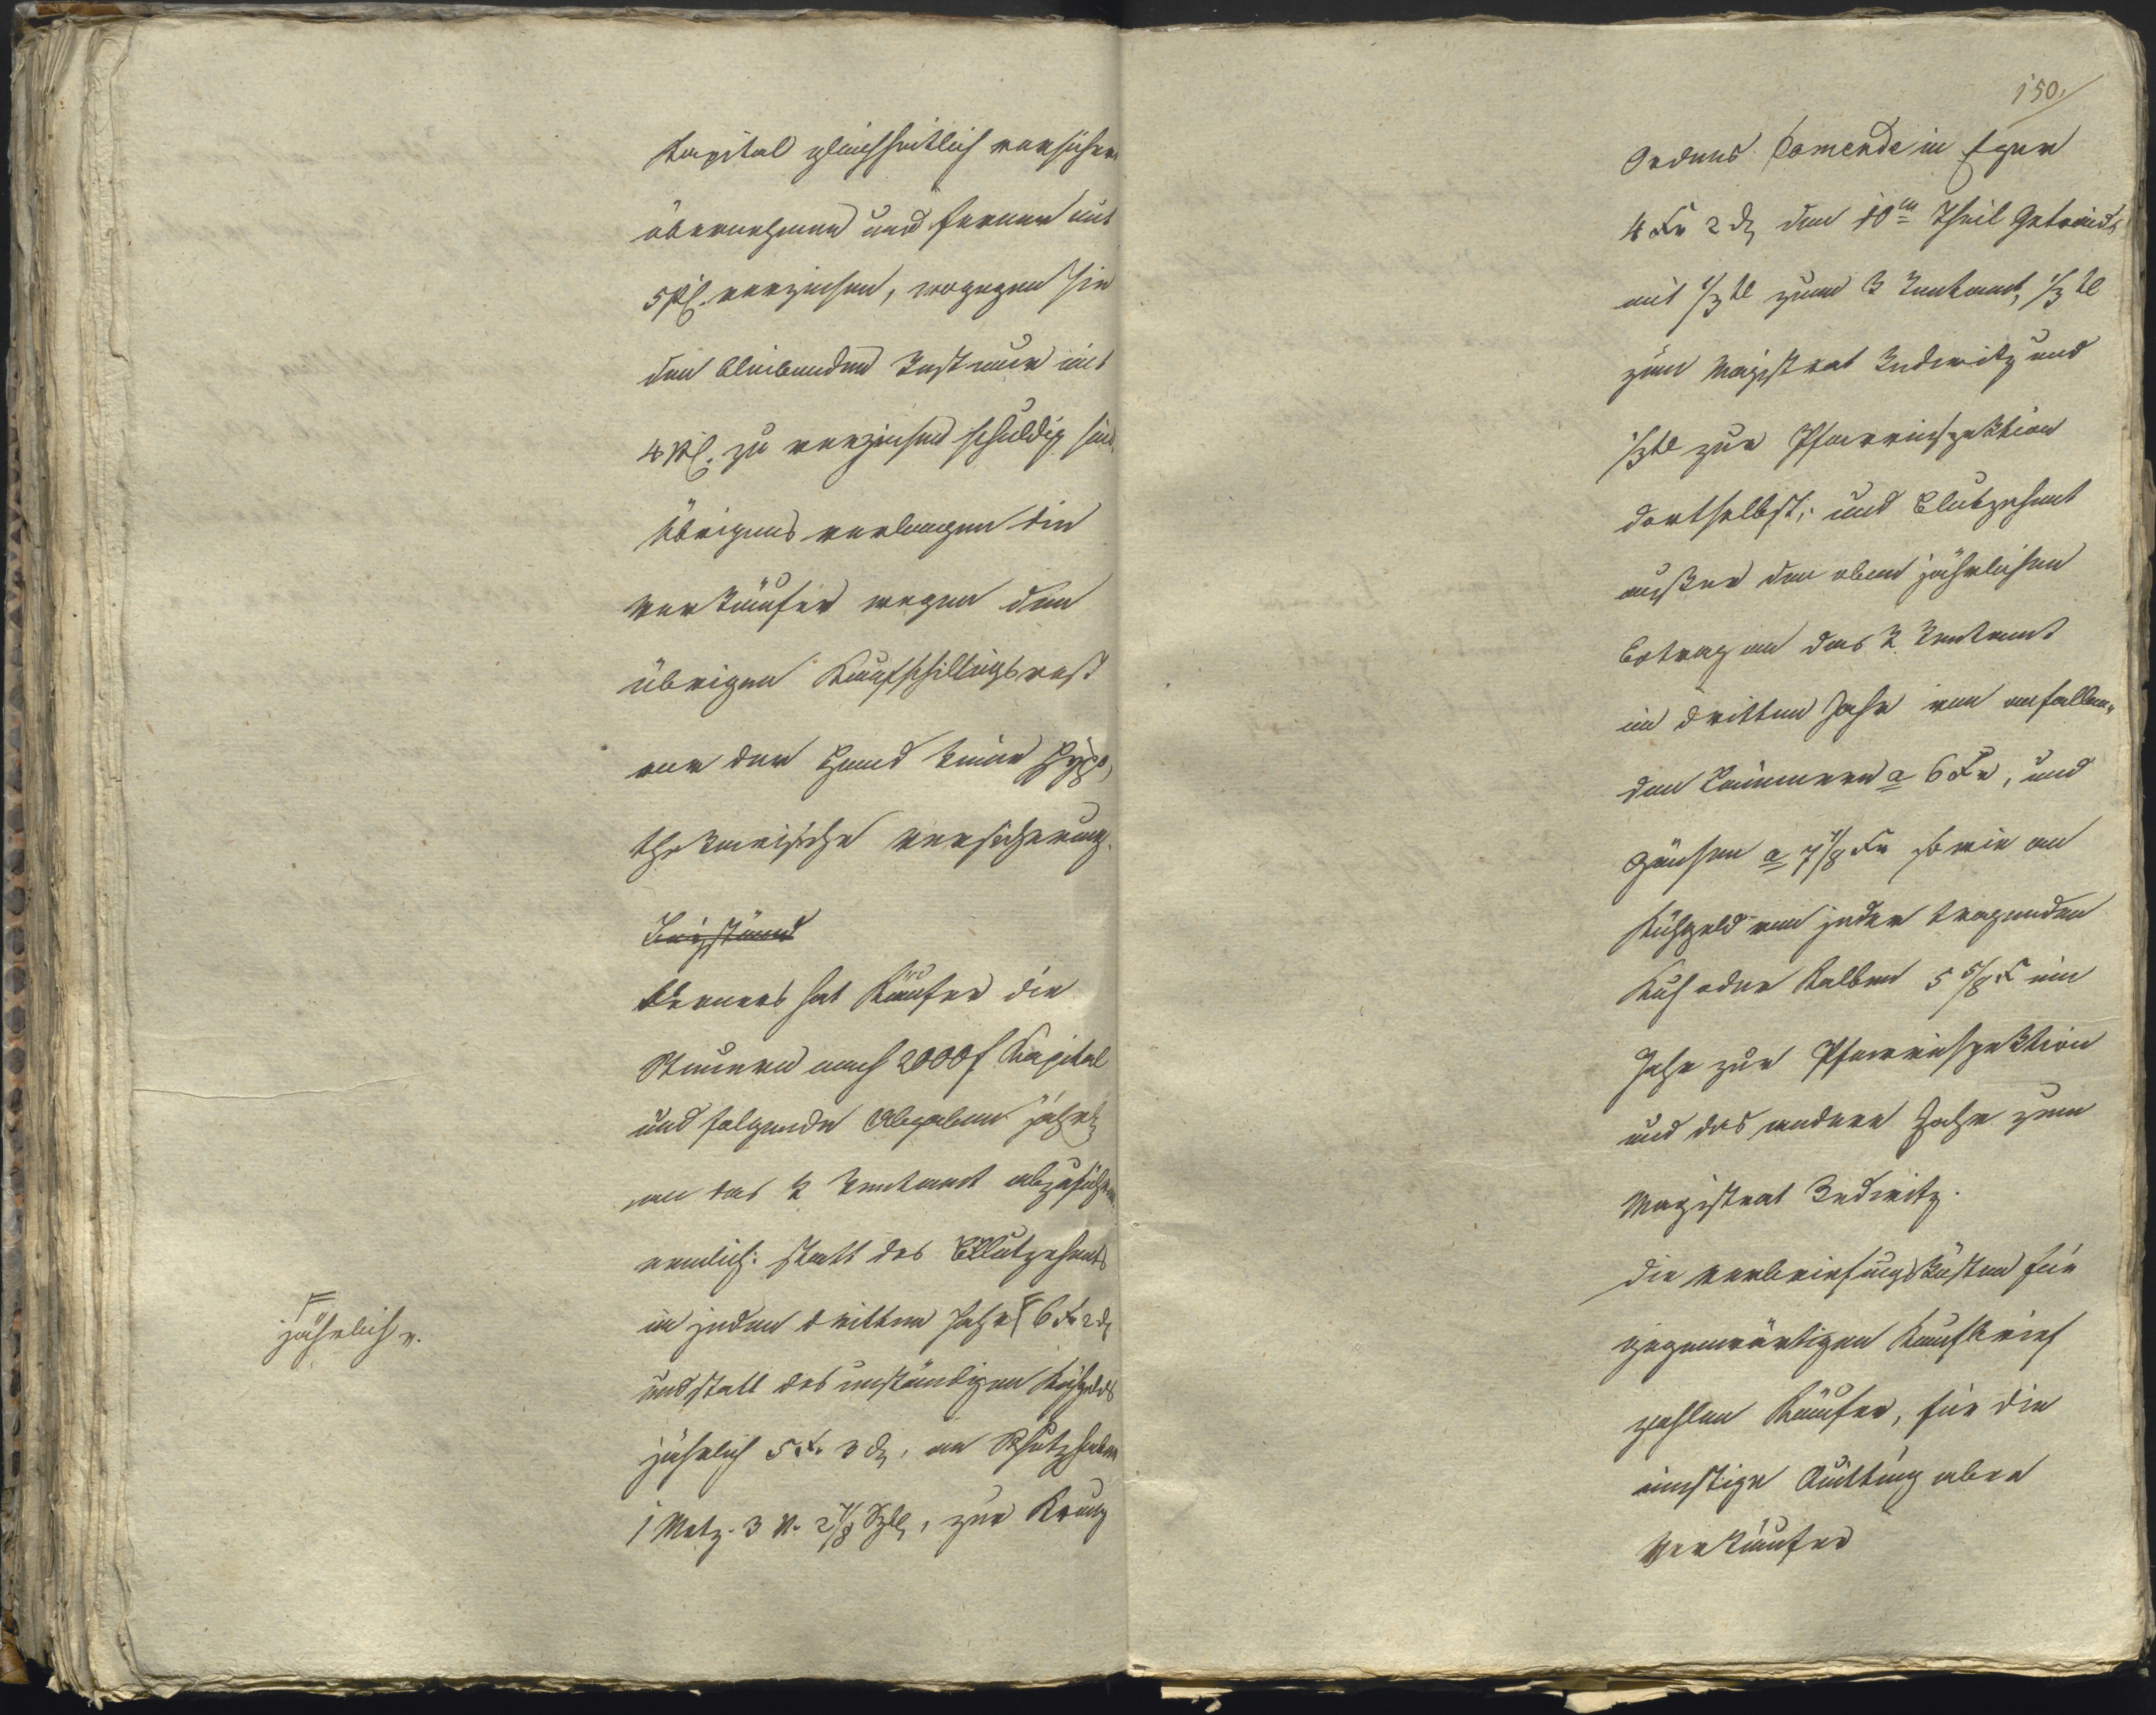 Kapital gleichheitlich versichern
übernehmen und ferner mit
5 Pf. verzinsen, wogegen sie
den bleibenden Rest nur mit
4 Pf. zu verzinsen schuldig sind.
Übrigens verlangen die
Verkäufer wegen dem
übrigen Kaufschillingsrest
vor der Hand keine Hypo,
thekarische Versicherung.
Ferners hat Käufer die
Steuern nach 2000 f Kapital
und folgende Abgaben jährl
an das K Rentamt abzuführen
nemlich: statt des Blutzehents
in jedem dritten Jahr 6 Kr 2 d
jährlich v.
und statt des unständigen Kühgelds
jährlich 5 Kr. 3 d, an Schutzhaber
1 Metz. 3 V. 2 7/8 , zur Kreuz
150.
Ordens Comende in Eger
4 Kr 2 d den 10ten Theil Getraids
mit 1/3tl zum K Rentamt, 1/3tl
zum Magistrat Redwitz und
1/3tl zur Pfarrinspektion
dortselbst; und Blutzehent
außer den oben jährlichen
Betrag an das K Rentamt
im dritten Jahr von anfallen„
den Lämmern a 6 Kr, und
Gänsen a 7 1/8 Kr sowie an
Kühgeld von jeder tragenden
Kuh oder Kalben 5 5/8 Kr ein
Jahr zur Pfarrinspektion
und das andere Jahr zum
Magistrat Redwitz.
Die Verbriefungskosten für
gegenwärtigen Kaufbrief
zahlen Käufer, für die
einstige Quittung aber
Verkäufer